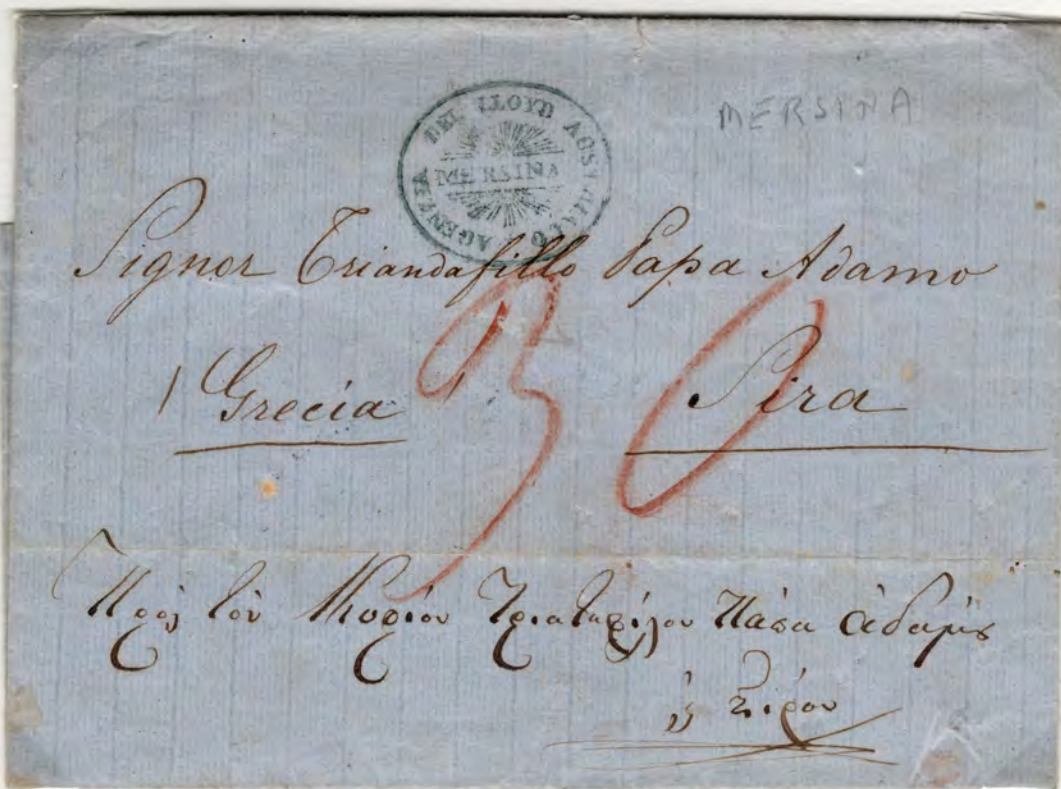 AGENZIA DEL LLOYD AUSTRIACO
MERSINA
MERSINA
Signor Triandafillo Papa Adamo
30
Grecia Sira
Πρὸς τὸν Κυρίον Τριαταφίλον Πάπα Αδαμις